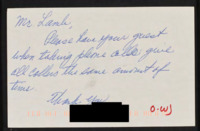 Mr. Lamb,
Please have your guest
when taking phone calls, give
all callers the same amount of
time.
Thank you
O-WJ